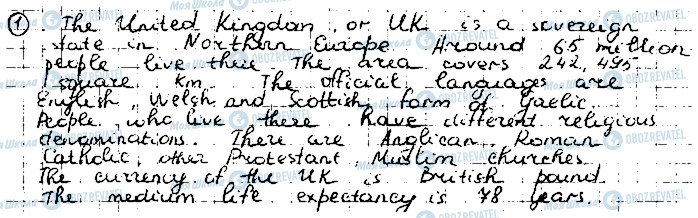 ① The United Kingdom or UK is a sovereign
state in Northern Europe. Around 65 million
people live there. The area covers 242,495
square km. The official languages are
English, Welsh and Scottish form of Gaelic.
People who live there have different religious
denominations. There are Anglican, Roman
Catholic, other Protestant, Muslim churches.
The currency of the UK is British pound.
The medium life expectancy is 78 years.